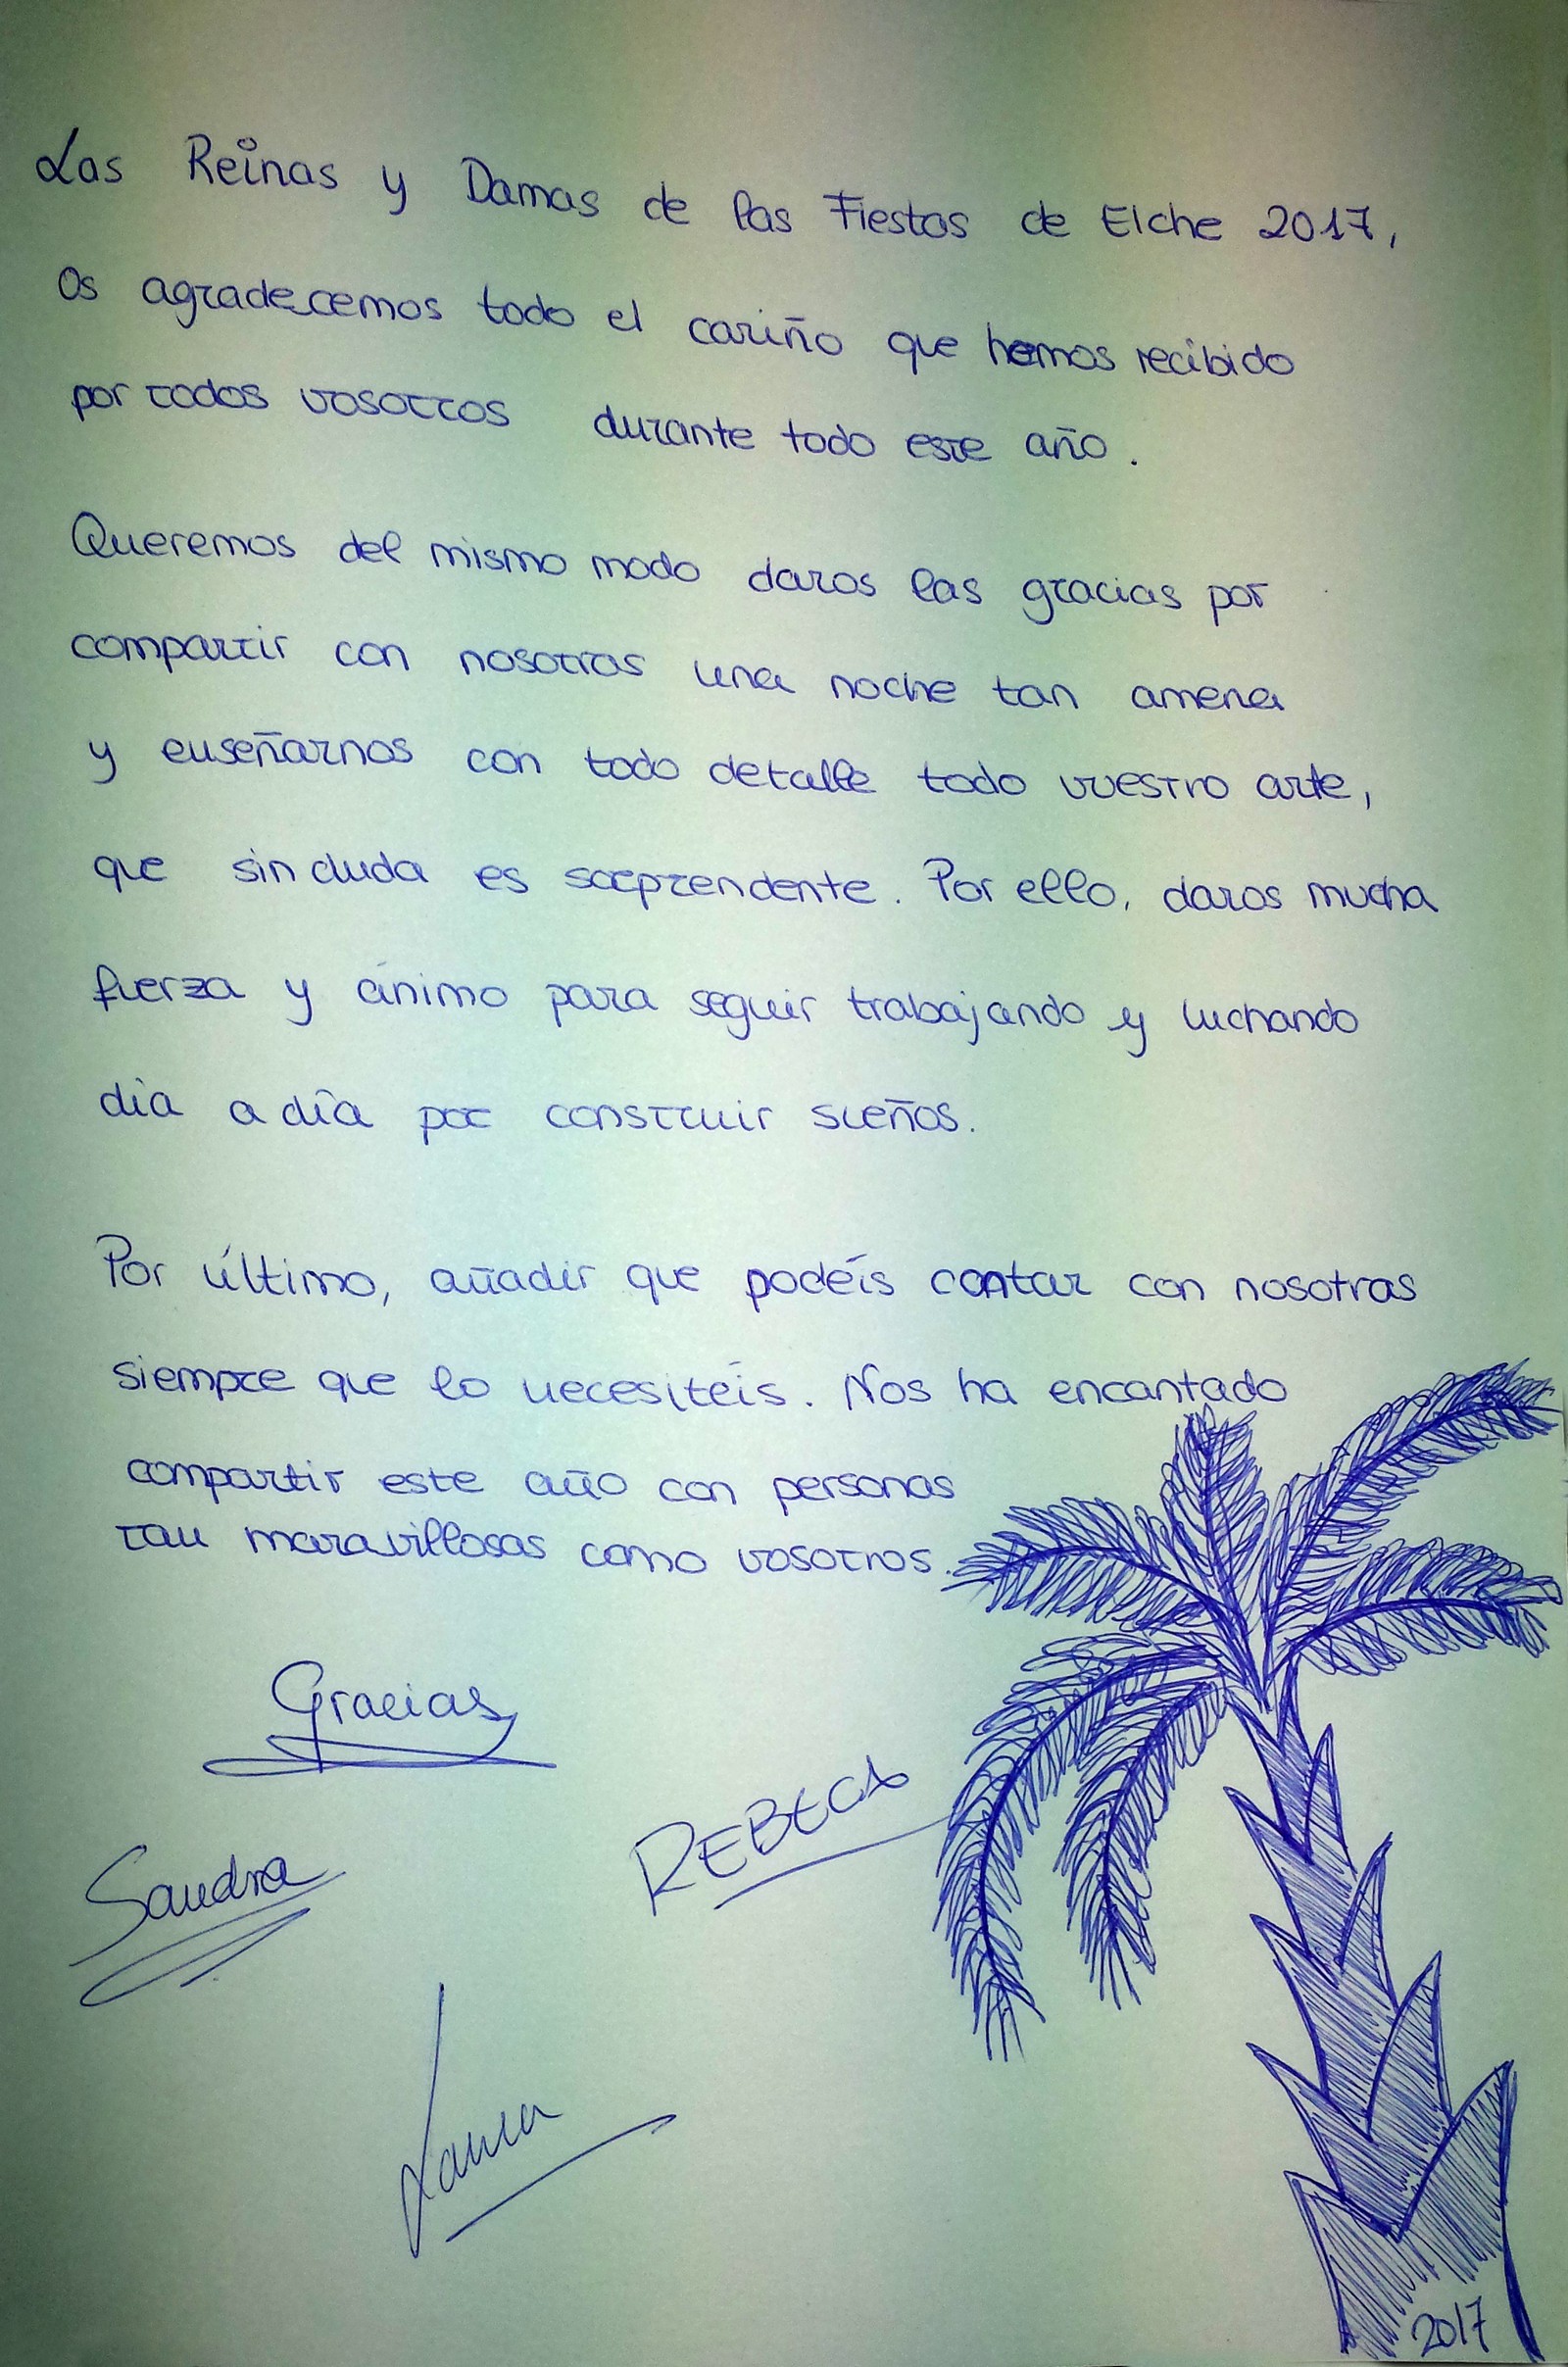 Las Reinas y Damas de las Fiestas de Elche 2017,
Os agradecemos todo el cariño que hemos recibido
por todos vosotros durante todo este año.
Queremos del mismo modo daros las gracias por
compartir con nosotras una noche tan amena
y enseñarnos con todo detalle todo vuestro arte,
que sin duda es sorprendente. Por ello, daros mucha
fuerza y ánimo para seguir trabajando y luchando
día a día por construir sueños.
Por último, añadir que podéis contar con nosotras
siempre que lo necesitéis. Nos ha encantado
compartir este año con personas
tan maravillosas como vosotros.
Gracias
REBECA
Sandra
Laura
2017